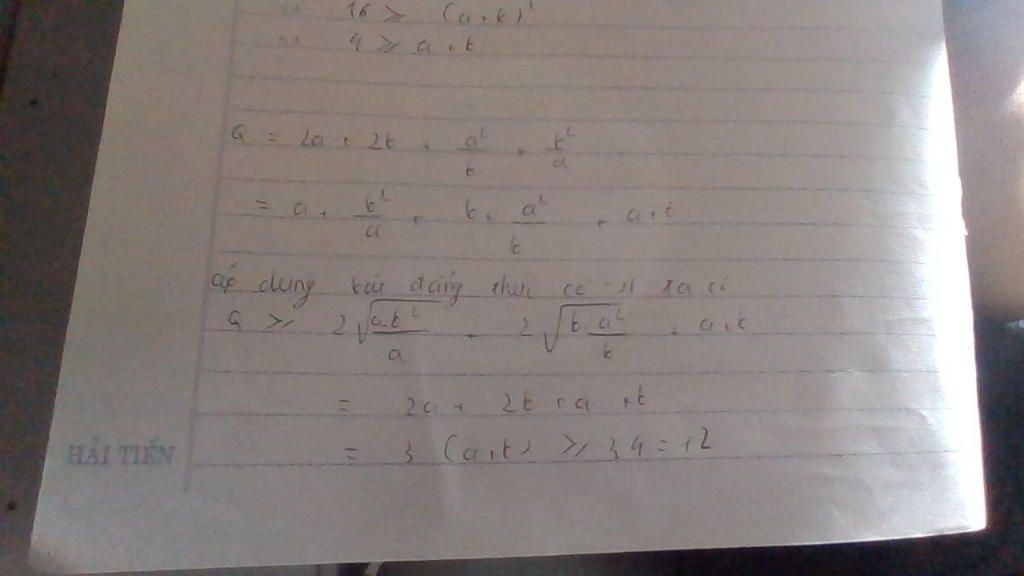 16 ≥ (a+b)²
4 ≥ a+b
Q = 2a + 2b + a²/b + b²/a
= a + b²/a + b + a²/b + a+b
áp dụng bất đẳng thức cô-si ta có
Q ≥ 2√(a.b²/a) + 2√(b.a²/b) + a+b
= 2a + 2b + a + b
= 3 (a+b) ≥ 3.4 = 12
HẢI TIẾN